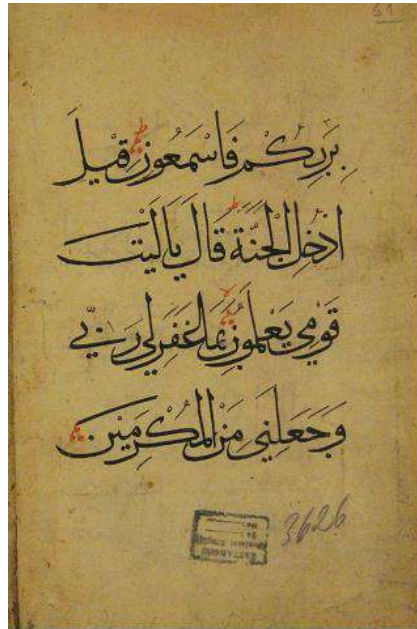 61
بِرَبِّكُمْ فَاسْمَعُونِ قِيلَ
ادْخُلِ الْجَنَّةَ قَالَ يَا لَيْتَ
قَوْمِي يَعْلَمُونَ بِمَا غَفَرَ لِي رَبِّي
وَجَعَلَنِي مِنَ الْمُكْرَمِينَ
3626